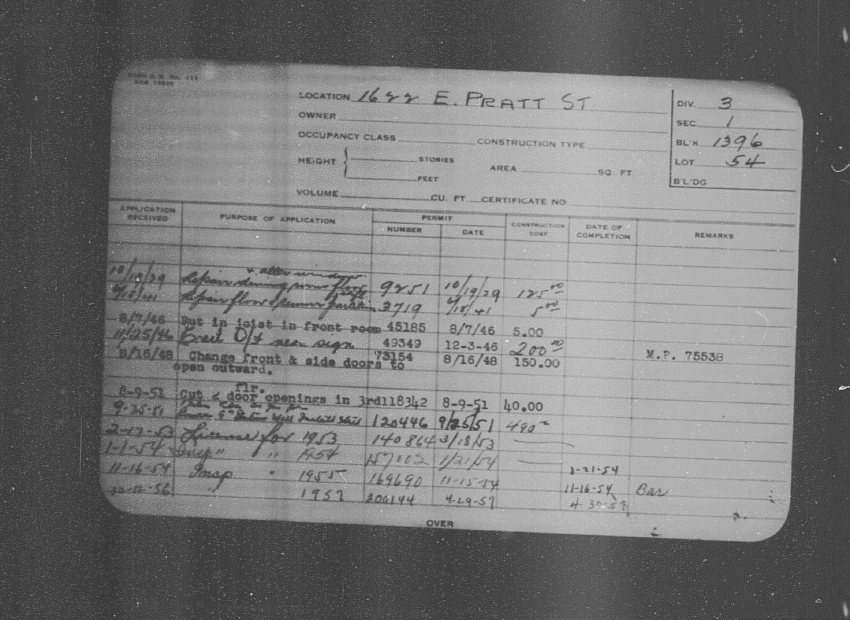 LOCATION 1622 E. PRATT ST
DIV. 3
OWNER
SEC. 1
OCCUPANCY CLASS CONSTRUCTION TYPE
BL'K 1396
HEIGHT { STORIES AREA SQ. FT.
LOT 54
FEET
B'L'DG
VOLUME CU. FT. CERTIFICATE NO.
APPLICATION RECEIVED PURPOSE OF APPLICATION PERMIT NUMBER DATE CONSTRUCTION COST DATE OF COMPLETION REMARKS
10/19/29 Repair dining room floor 9251 10/19/29 125.00
Repair floor 3719 5.00
8/7/46 Put in joist in front room 45185 8/7/46 5.00
11/25/46 Erect D/F neon sign 49349 12-3-46 200.00
8/16/48 Change front & side doors to 73154 8/16/48 150.00 M.P. 75538
open outward.
flr.
8-9-51 Cut 2 door openings in 3rd 118342 8-9-51 40.00
9-25-51 120446 9/25/51 490
2-17-53 License for 1953 140864 3/18/53
1-1-54 Insp " " 1954 157002 1/21/54 1-21-54
11-16-54 Insp " 1955 169690 11-15-54 11-16-54 Bar
" 1957 200144 4-29-57 4 30-57
OVER